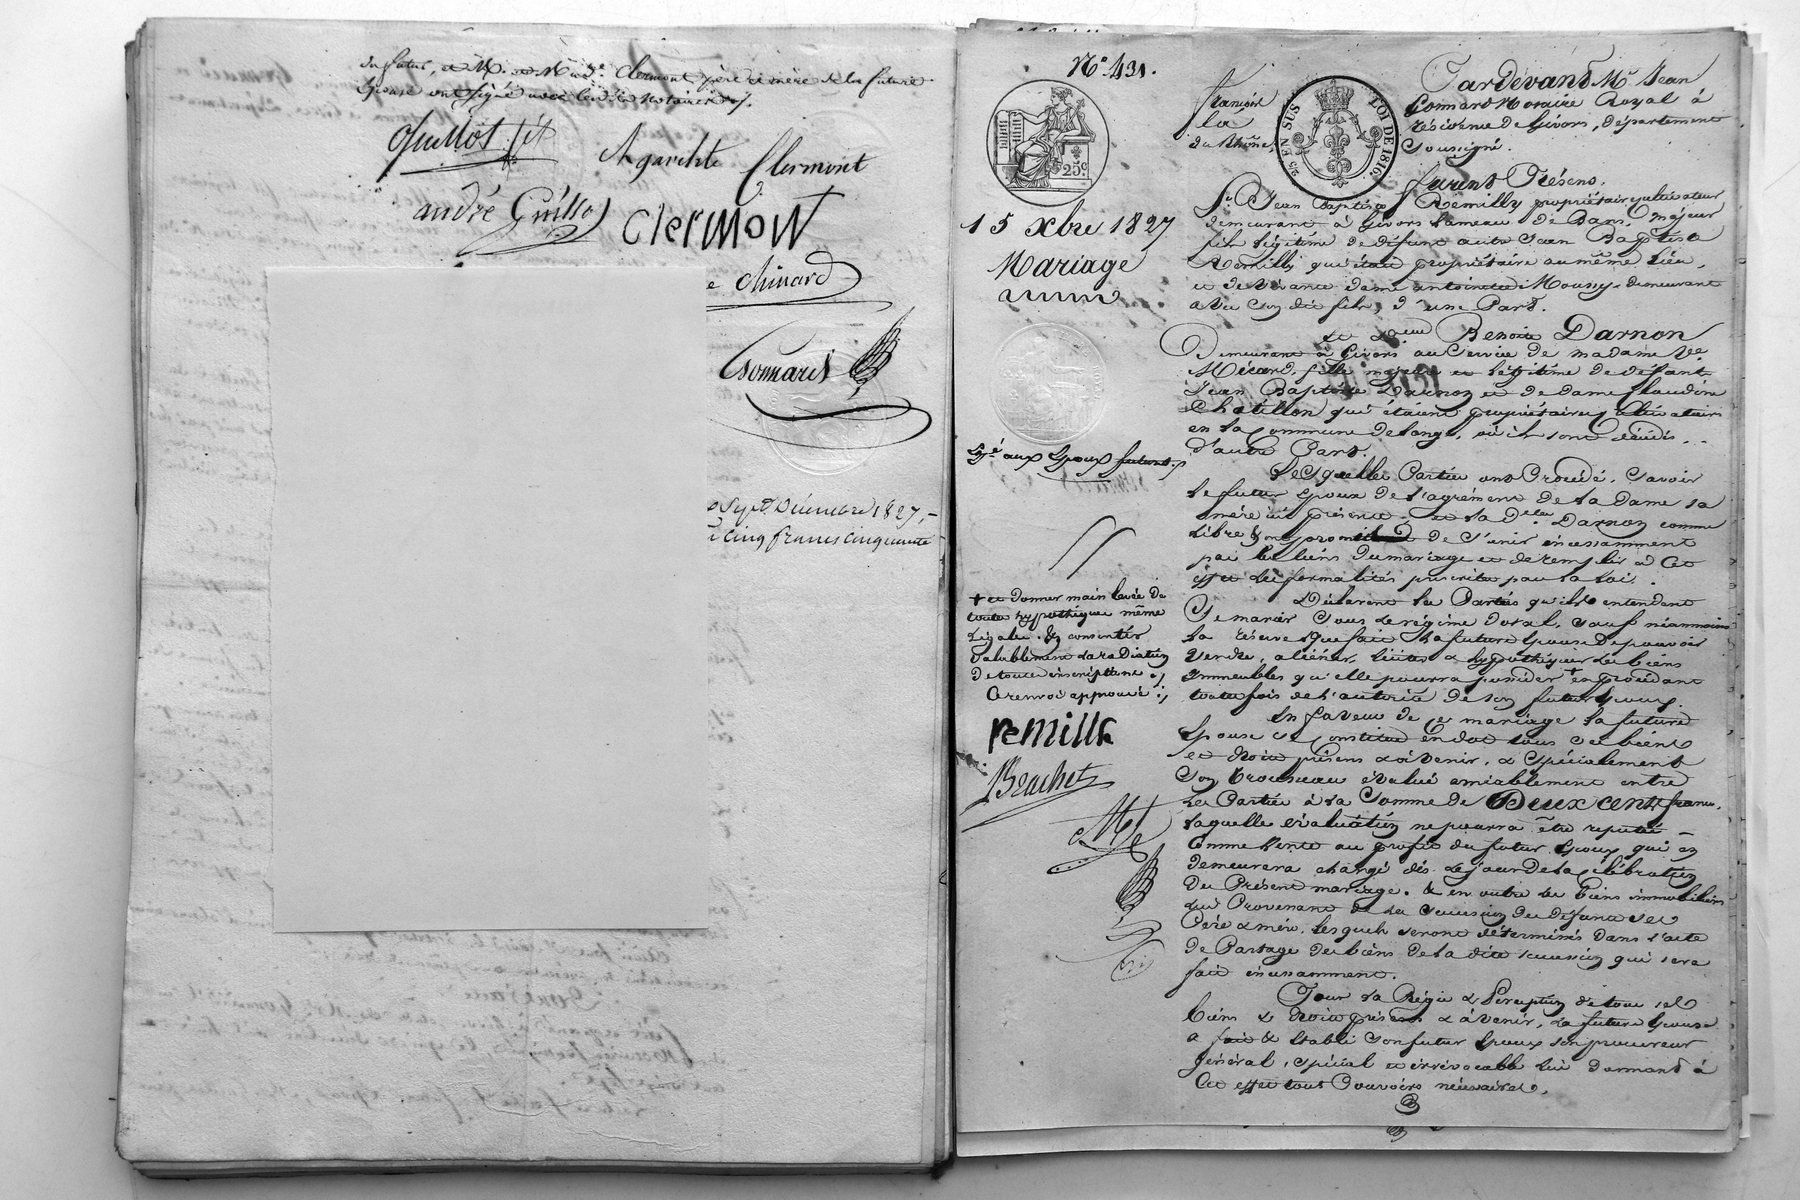 du futur, et M. et Mad.e Clermont père et mère de la future
Epouse ont signé avec les dits Notaires
Guillot fils
Agarithe Clermont
andré Guillot
Clermont
e Chinard
Gonnard
Sept Décembre 1827,
cinq francs cinquante
N.° 431.
25 c.
15 xbre 1827
Mariage
Exp.é aux Epoux futurs.
+ et donner main levée de
toutes hypothèques même
légales, & consentir
valablement la radiation
de toutes inscriptions ;
Ce renvoi approuvé ;
remille
Brachet
25 EN SUS
LOI DE 1816.
Pardevant M.e Jean
François Gonnard Notaire Royal à
la résidence de Givors, département
du Rhône, soussigné.
furent Présens.
S.r Jean Baptiste Remilly propriétaire cultivateur
demeurant à Givors hameau de Bans, majeur
fils légitime de défunt autre Jean Baptiste
Remilly qui était propriétaire au même lieu,
et de vivante dame antoinette Moussy demeurant
avec son dit fils, d'une Part.
Et D.elle Benoite Darnon
Demeurant à Givors au service de madame V.e
fille majeure et légitime de défunt
Jean Baptiste Darnon et de dame Claudine
Chatillon qui étaient propriétaires cultivateurs
en la Commune de où ils sont décédés
d'autre Part.
Lesquelles Parties ont Procédé, Savoir
le futur Epoux de l'agrément de la Dame sa
mère ici présente, et la D.elle Darnon comme
libre ont promis de s'unir incessamment
par les liens du mariage et de remplir à cet
effet les formalités prescrites par la loi.
Déclarent les Parties qu'ils entendent
Se marier sous le régime dotal, sauf néanmoins
la réserve que fait la future Epouse de pouvoir
vendre, aliéner, & hypothéquer les biens
immeubles qu'elle pourra posséder + en procédant
toutefois de l'autorité de son futur Epoux.
En faveur de ce mariage la future
Epouse se constitue en dot tous ses biens
et droits présens & à venir, & spécialement
Son trousseau évalué amiablement entre
les Parties à la Somme de Deux cents francs,
laquelle évaluation ne pourra être réputée
comme vente au profit du futur Epoux qui en
demeurera chargé dès le jour de la célébration
du Présent mariage. & en outre les biens immobiliers
lui Provenant de la succession des défunts ses
Père & mère, lesquels seront déterminés dans l'acte
de Partage des biens de la dite succession qui sera
fait incessamment.
Pour la Régie & Perception de tous ses
biens & droits présens & à venir, la future Epouse
a fait & établi son futur Epoux son procureur
général, spécial et irrévocable lui donnant à
cet effet tous Pouvoirs nécessaires.